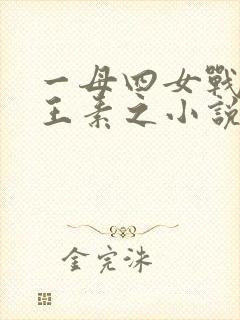 一母四女戰
王素之小說
金完洙